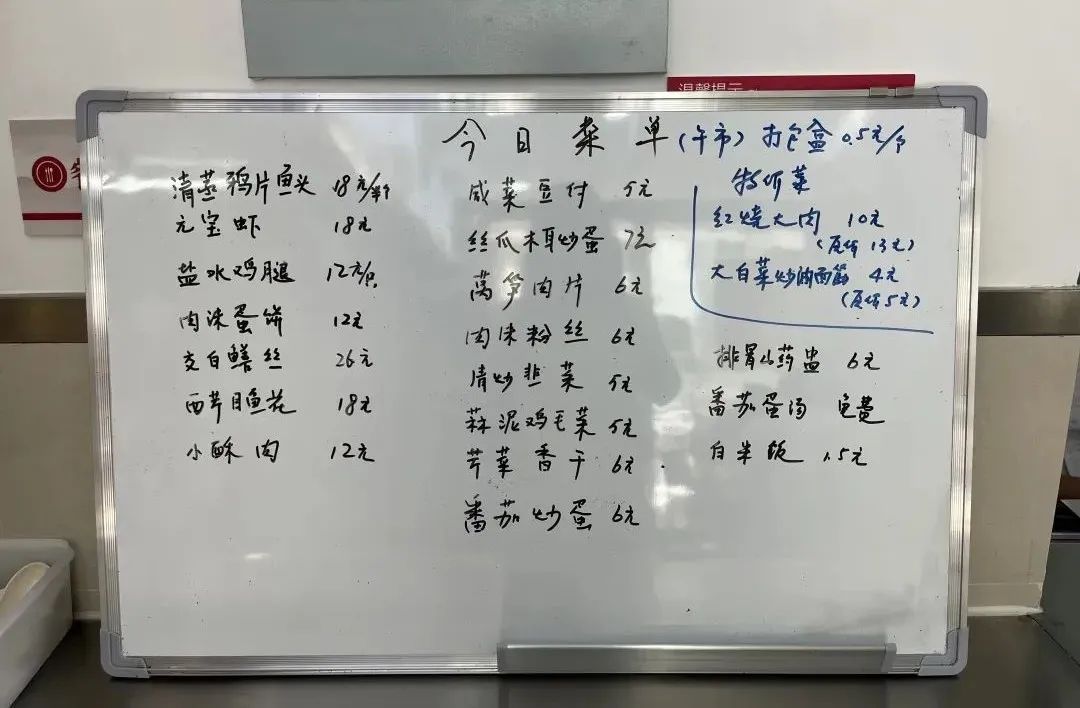 温馨提示
今日菜单(午市) 打包盒 0.5元/个
清蒸鸦片鱼头 18元/半个
元宝虾 18元
盐水鸡腿 12元/只
肉沫蛋饼 12元
交白鳝丝 26元
西芹目鱼花 18元
小酥肉 12元
咸菜豆付 5元
丝瓜木耳炒蛋 7元
莴笋肉片 6元
肉沫粉丝 6元
清炒韭菜 5元
蒜泥鸡毛菜 5元
芹菜香干 6元
番茄炒蛋 6元
特价菜
红烧大肉 10元
(原价13元)
大白菜炒油面筋 4元
(原价5元)
排骨山药盅 6元
番茄蛋汤 免费
白米饭 1.5元